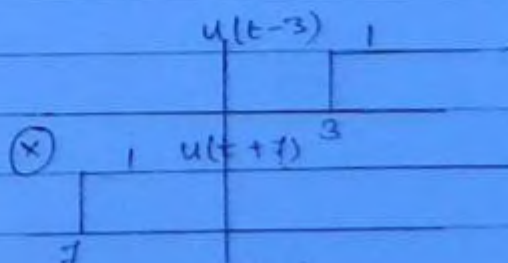 u(t-3) 1
3
× 1 u(t+7)
7